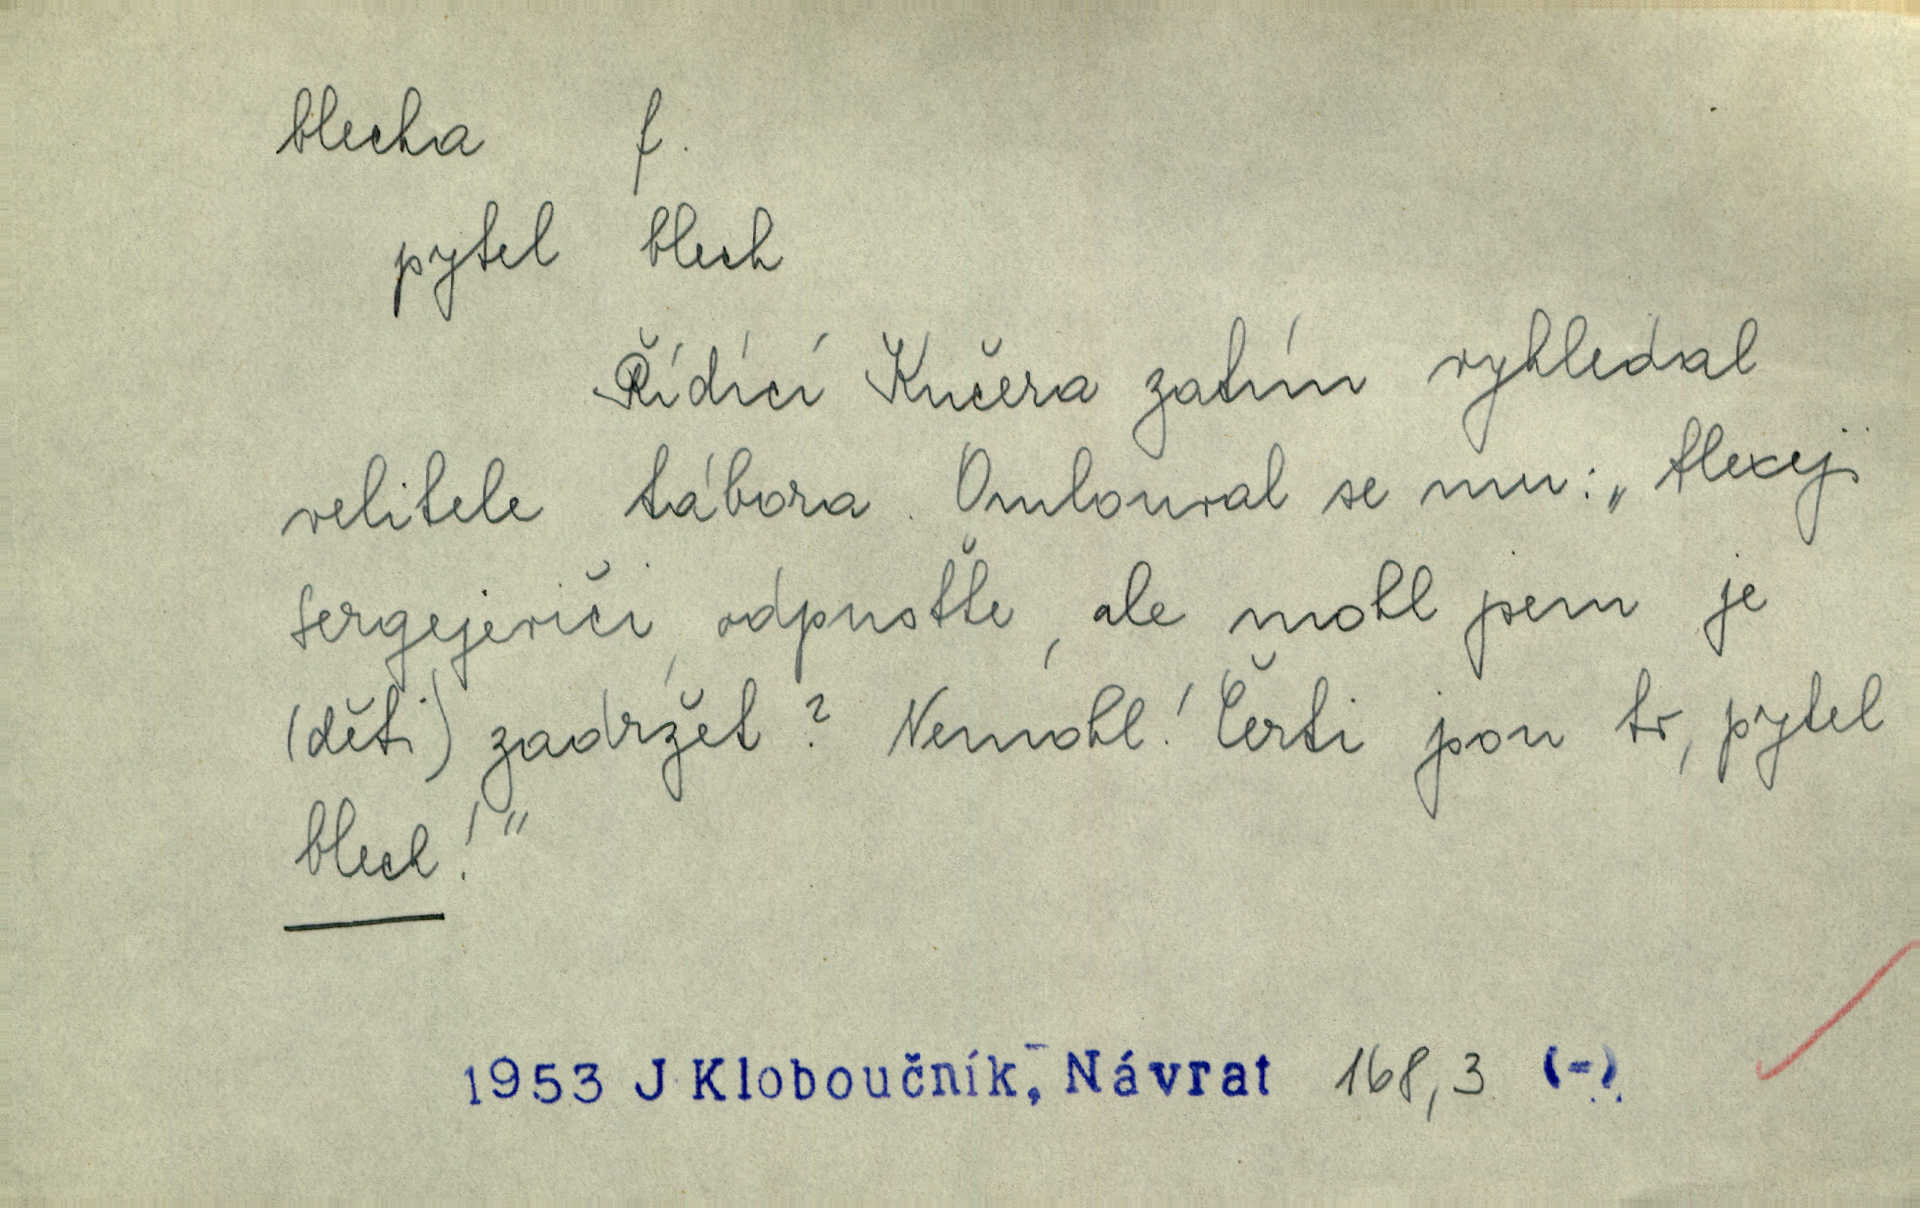 blecha f.
pytel blech
Řídící Kučera zatím vyhledal
velitele tábora. Omlouval se mu: „Alexej
Sergejeviči, odpusťte, ale mohl jsem je
(děti) zadržet? Nemohl! Čerti jsou to, pytel
blech!"
1953 J. Kloboučník, Návrat 168,3 (-)